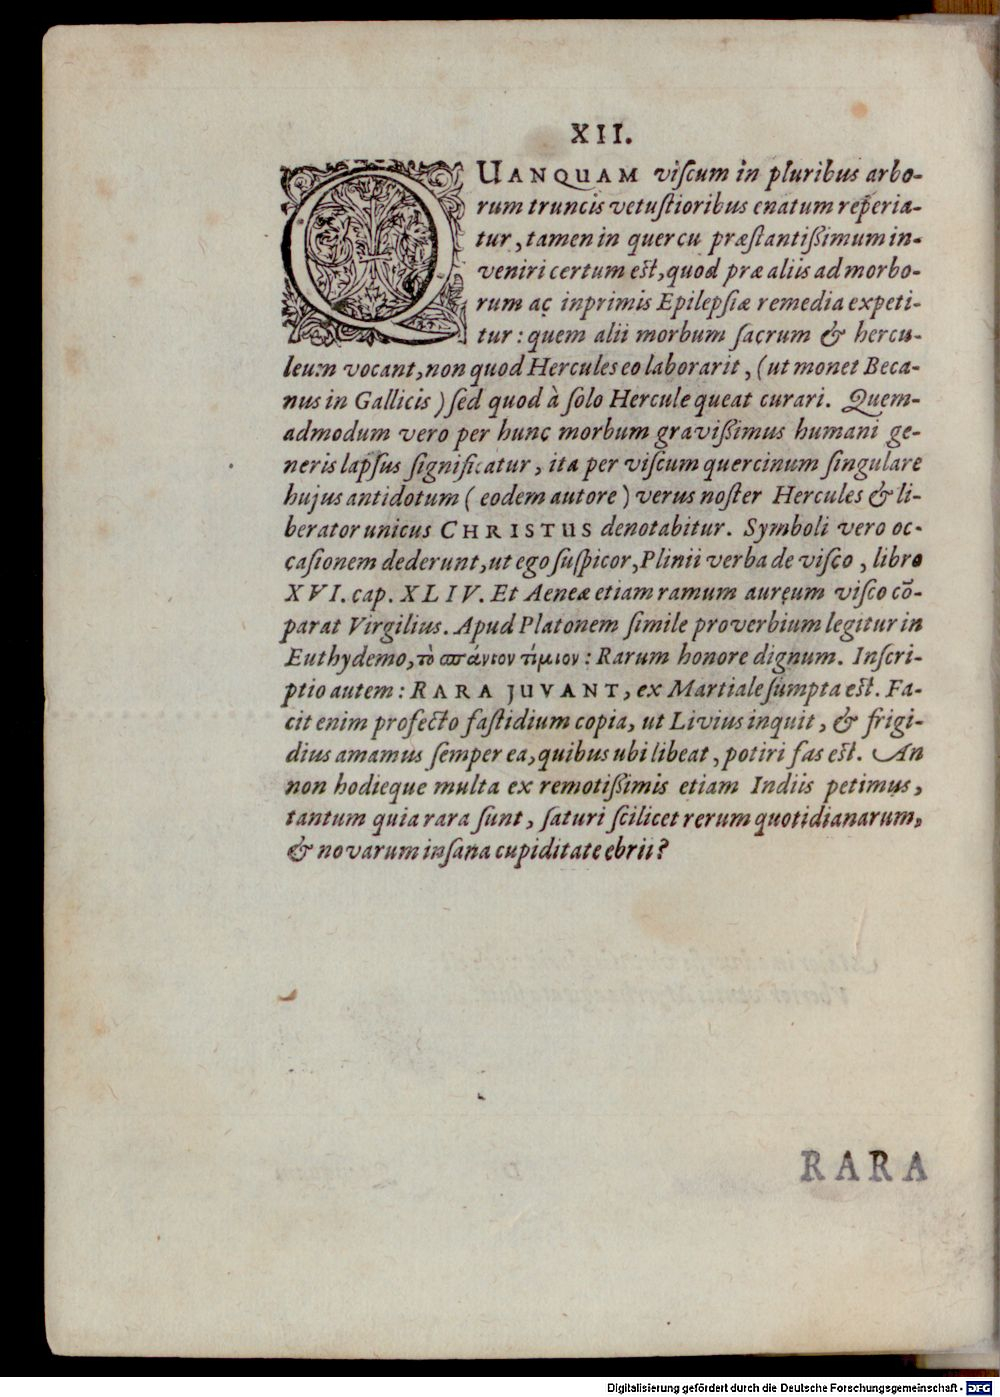 XII.
QUANQUAM viſcum in pluribus arbo-
rum truncis vetuſtioribus enatum reperia-
tur, tamen in quercu præſtantißimum in-
veniri certum eſt, quod præ aliis ad morbo-
rum ac inprimis Epilepſiæ remedia expeti-
tur: quem alii morbum ſacrum & hercu-
leum vocant, non quod Hercules eo laborarit, (ut monet Beca-
nus in Gallicis) ſed quod à ſolo Hercule queat curari. Quem-
admodum vero per hunc morbum gravißimus humani ge-
neris lapſus ſignificatur, ita per viſcum quercinum ſingulare
hujus antidotum (eodem autore) verus noſter Hercules & li-
berator unicus CHRISTUS denotabitur. Symboli vero oc-
caſionem dederunt, ut ego ſuſpicor, Plinii verba de viſco, libro
XVI. cap. XLIV. Et Aeneæ etiam ramum aureum viſco cõ-
parat Virgilius. Apud Platonem ſimile proverbium legitur in
Euthydemo, τὸ σπάνιον τίμιον: Rarum honore dignum. Inſcri-
ptio autem: RARA JUVANT, ex Martiale ſumpta eſt. Fa-
cit enim profecto faſtidium copia, ut Livius inquit, & frigi-
dius amamus ſemper ea, quibus ubi libeat, potiri fas eſt. An
non hodieque multa ex remotißimis etiam Indiis petimus,
tantum quia rara ſunt, ſaturi ſcilicet rerum quotidianarum,
& novarum inſana cupiditate ebrii?
RARA
Digitalisierung gefördert durch die Deutsche Forschungsgemeinschaft - DFG